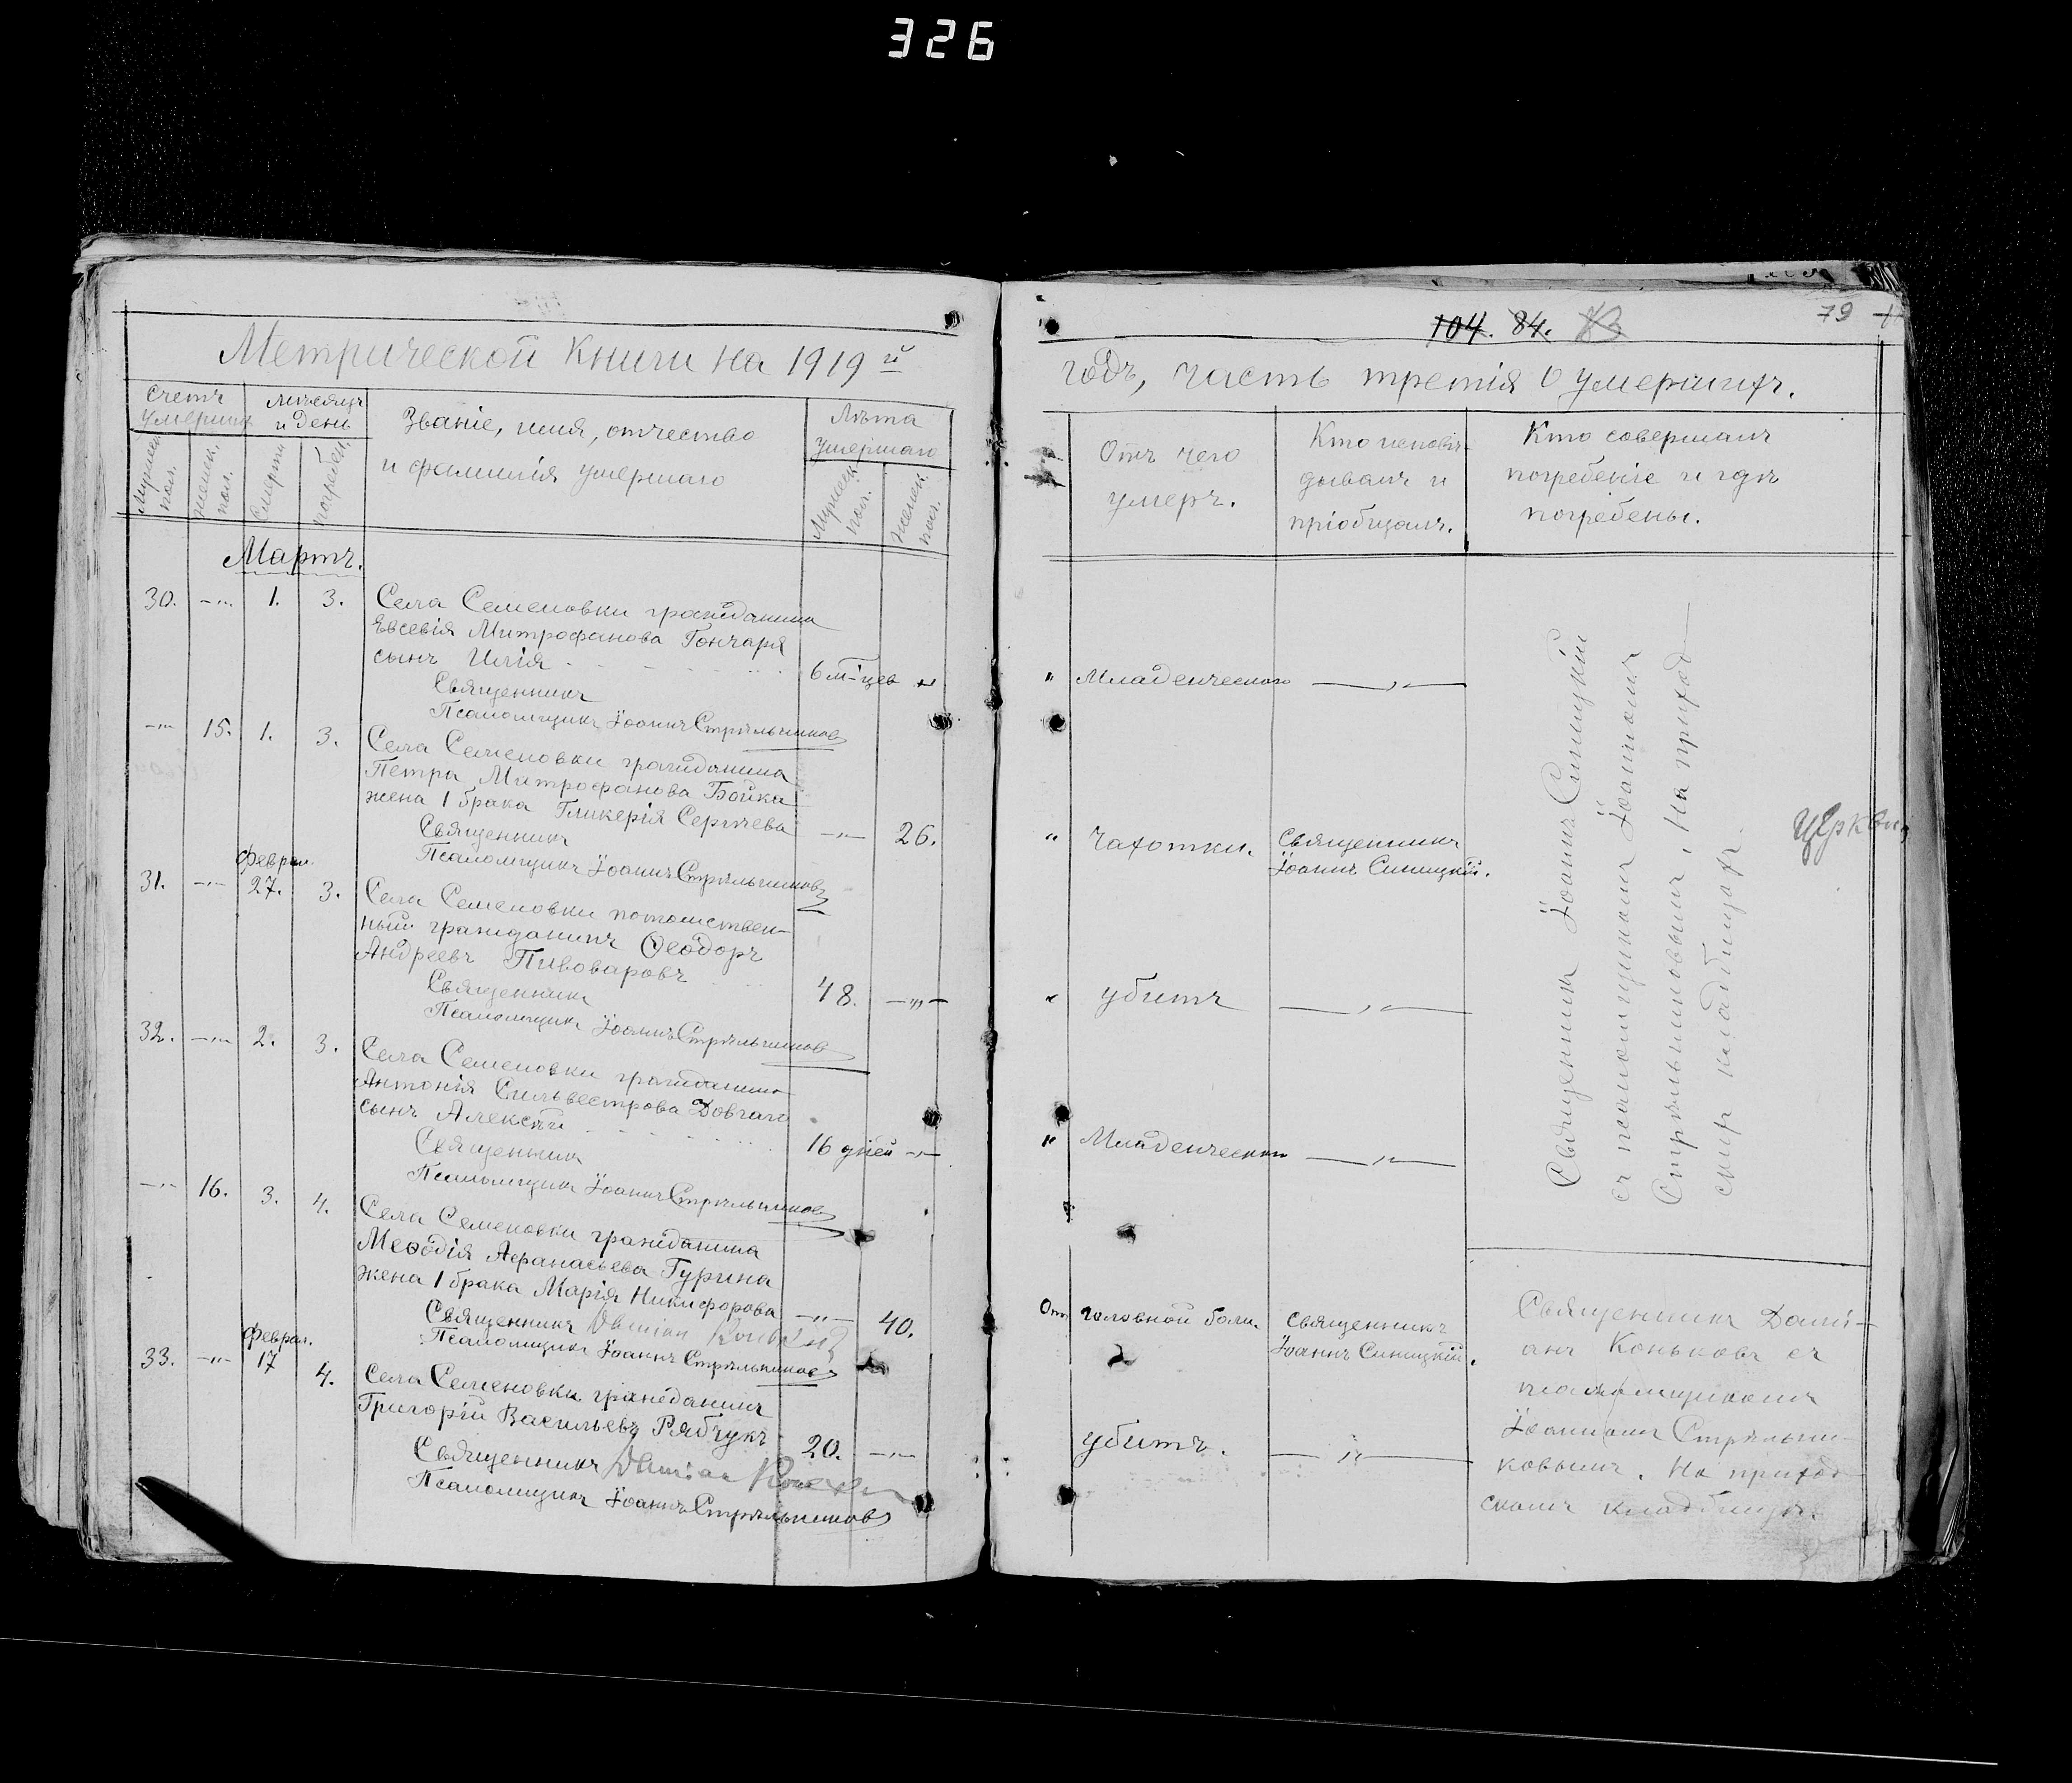 326
Метрической книги на 1919 й
Счетъ умерших
Мѣсяцъ и день
Званіе, имя, отчество и фамилія умершаго
Лѣта умершаго
Мужеск. пол.
Женск. пол.
Смерти
Погребен.
Мужеск. пол.
Женск. пол.
Мартъ.
30. -„- 1. 3. Села Семеновки гражданина
Евсевія Митрофанова Гончаря
сынъ Илія 6 м-цев „
Священникъ
Псаломщикъ Іоаннъ Стрѣльниковъ
-„- 15. 1. 3. Села Семеновки гражданина
Петра Митрофанова Бойка
жена 1 брака Гликерія Сергѣева -„- 26.
Священникъ
Псаломщикъ Іоаннъ Стрѣльниковъ
Феврал.
31. -„- 27. 3. Села Семеновки потомствен-
ный гражданинъ Ѳеодоръ
Андреевъ Пивоваровъ 48. -„-
Священникъ
Псаломщикъ Іоаннъ Стрѣльниковъ
32. -„- 2. 3. Села Семеновки гражданина
Антонія Сильвестрова Довгаго
сынъ Алексѣй 16 дней -„-
Священникъ
Псаломщикъ Іоаннъ Стрѣльниковъ
-„- 16. 3. 4. Села Семеновки гражданина
Меѳодія Афанасьева Гурина
жена 1 брака Марія Никифорова -„- 40.
Священникъ Damian
Псаломщикъ Іоаннъ Стрѣльниковъ
Феврал.
33. -„- 17 4. Села Семеновки гражданинъ
Григорій Васильевъ Рябчукъ 20. -„-
Священникъ Damian
Псаломщикъ Іоаннъ Стрѣльниковъ
104. 84. 79
годъ, часть третія о умершихъ.
Отъ чего умеръ.
Кто исповѣдывалъ и пріобщалъ.
Кто совершалъ погребеніе и гдѣ погребены.
„ Младенческаго -„-
„ Чахотки. Священникъ
Іоаннъ Синицкій.
„ убитъ -„-
„ Младенческаго -„-
От головной боли. Священникъ
Іоаннъ Синицкій.
убитъ. -„-
Священникъ Іоаннъ Синицкій
съ псаломщикомъ Іоанномъ
Стрѣльниковымъ, на приход
скмъ кладбищѣ.
Церковн
Священникъ Дамі-
анъ Коньковъ съ
псаломщикомъ
Іоанномъ Стрѣльни-
ковымъ. На приход
скомъ кладбищѣ.